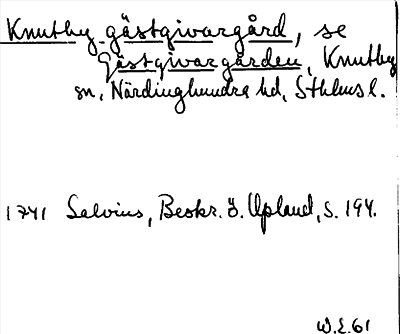 Knutby gästgivargård, se
Gästgivargården, Knutby
sn, Närdinghundra hd, Sthlms l.
1741 Salvius, Beskr. ö. Upland, s. 194.
W.E. 61